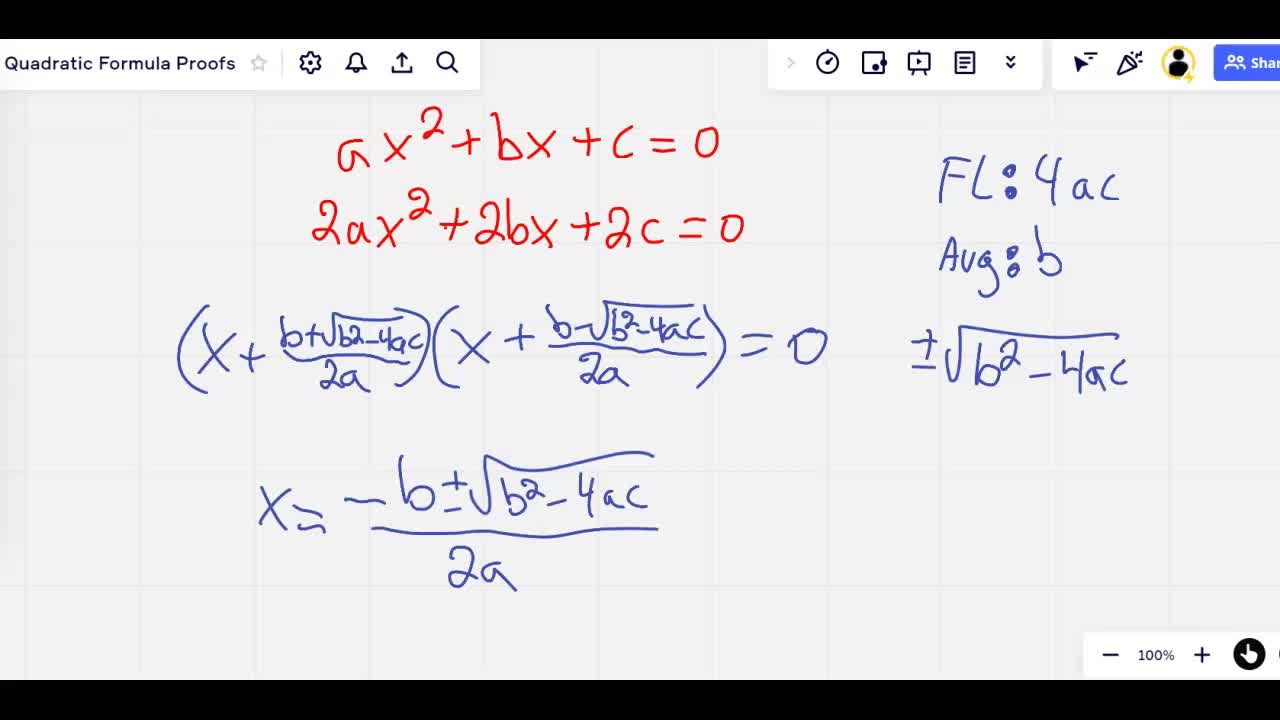 Quadratic Formula Proofs
Shar
ax² + bx + c = 0
2ax² + 2bx + 2c = 0
FL: 4ac
Avg: b
(x + (b+√(b²-4ac))/2a)(x + (b-√(b²-4ac))/2a) = 0
±√(b²-4ac)
x = (-b±√(b²-4ac))/2a
100%